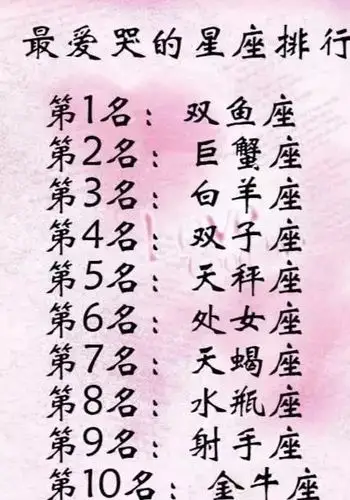 最爱哭的星座排行
第1名：双鱼座
第2名：巨蟹座
第3名：白羊座
第4名：双子座
第5名：天秤座
第6名：处女座
第7名：天蝎座
第8名：水瓶座
第9名：射手座
第10名：金牛座